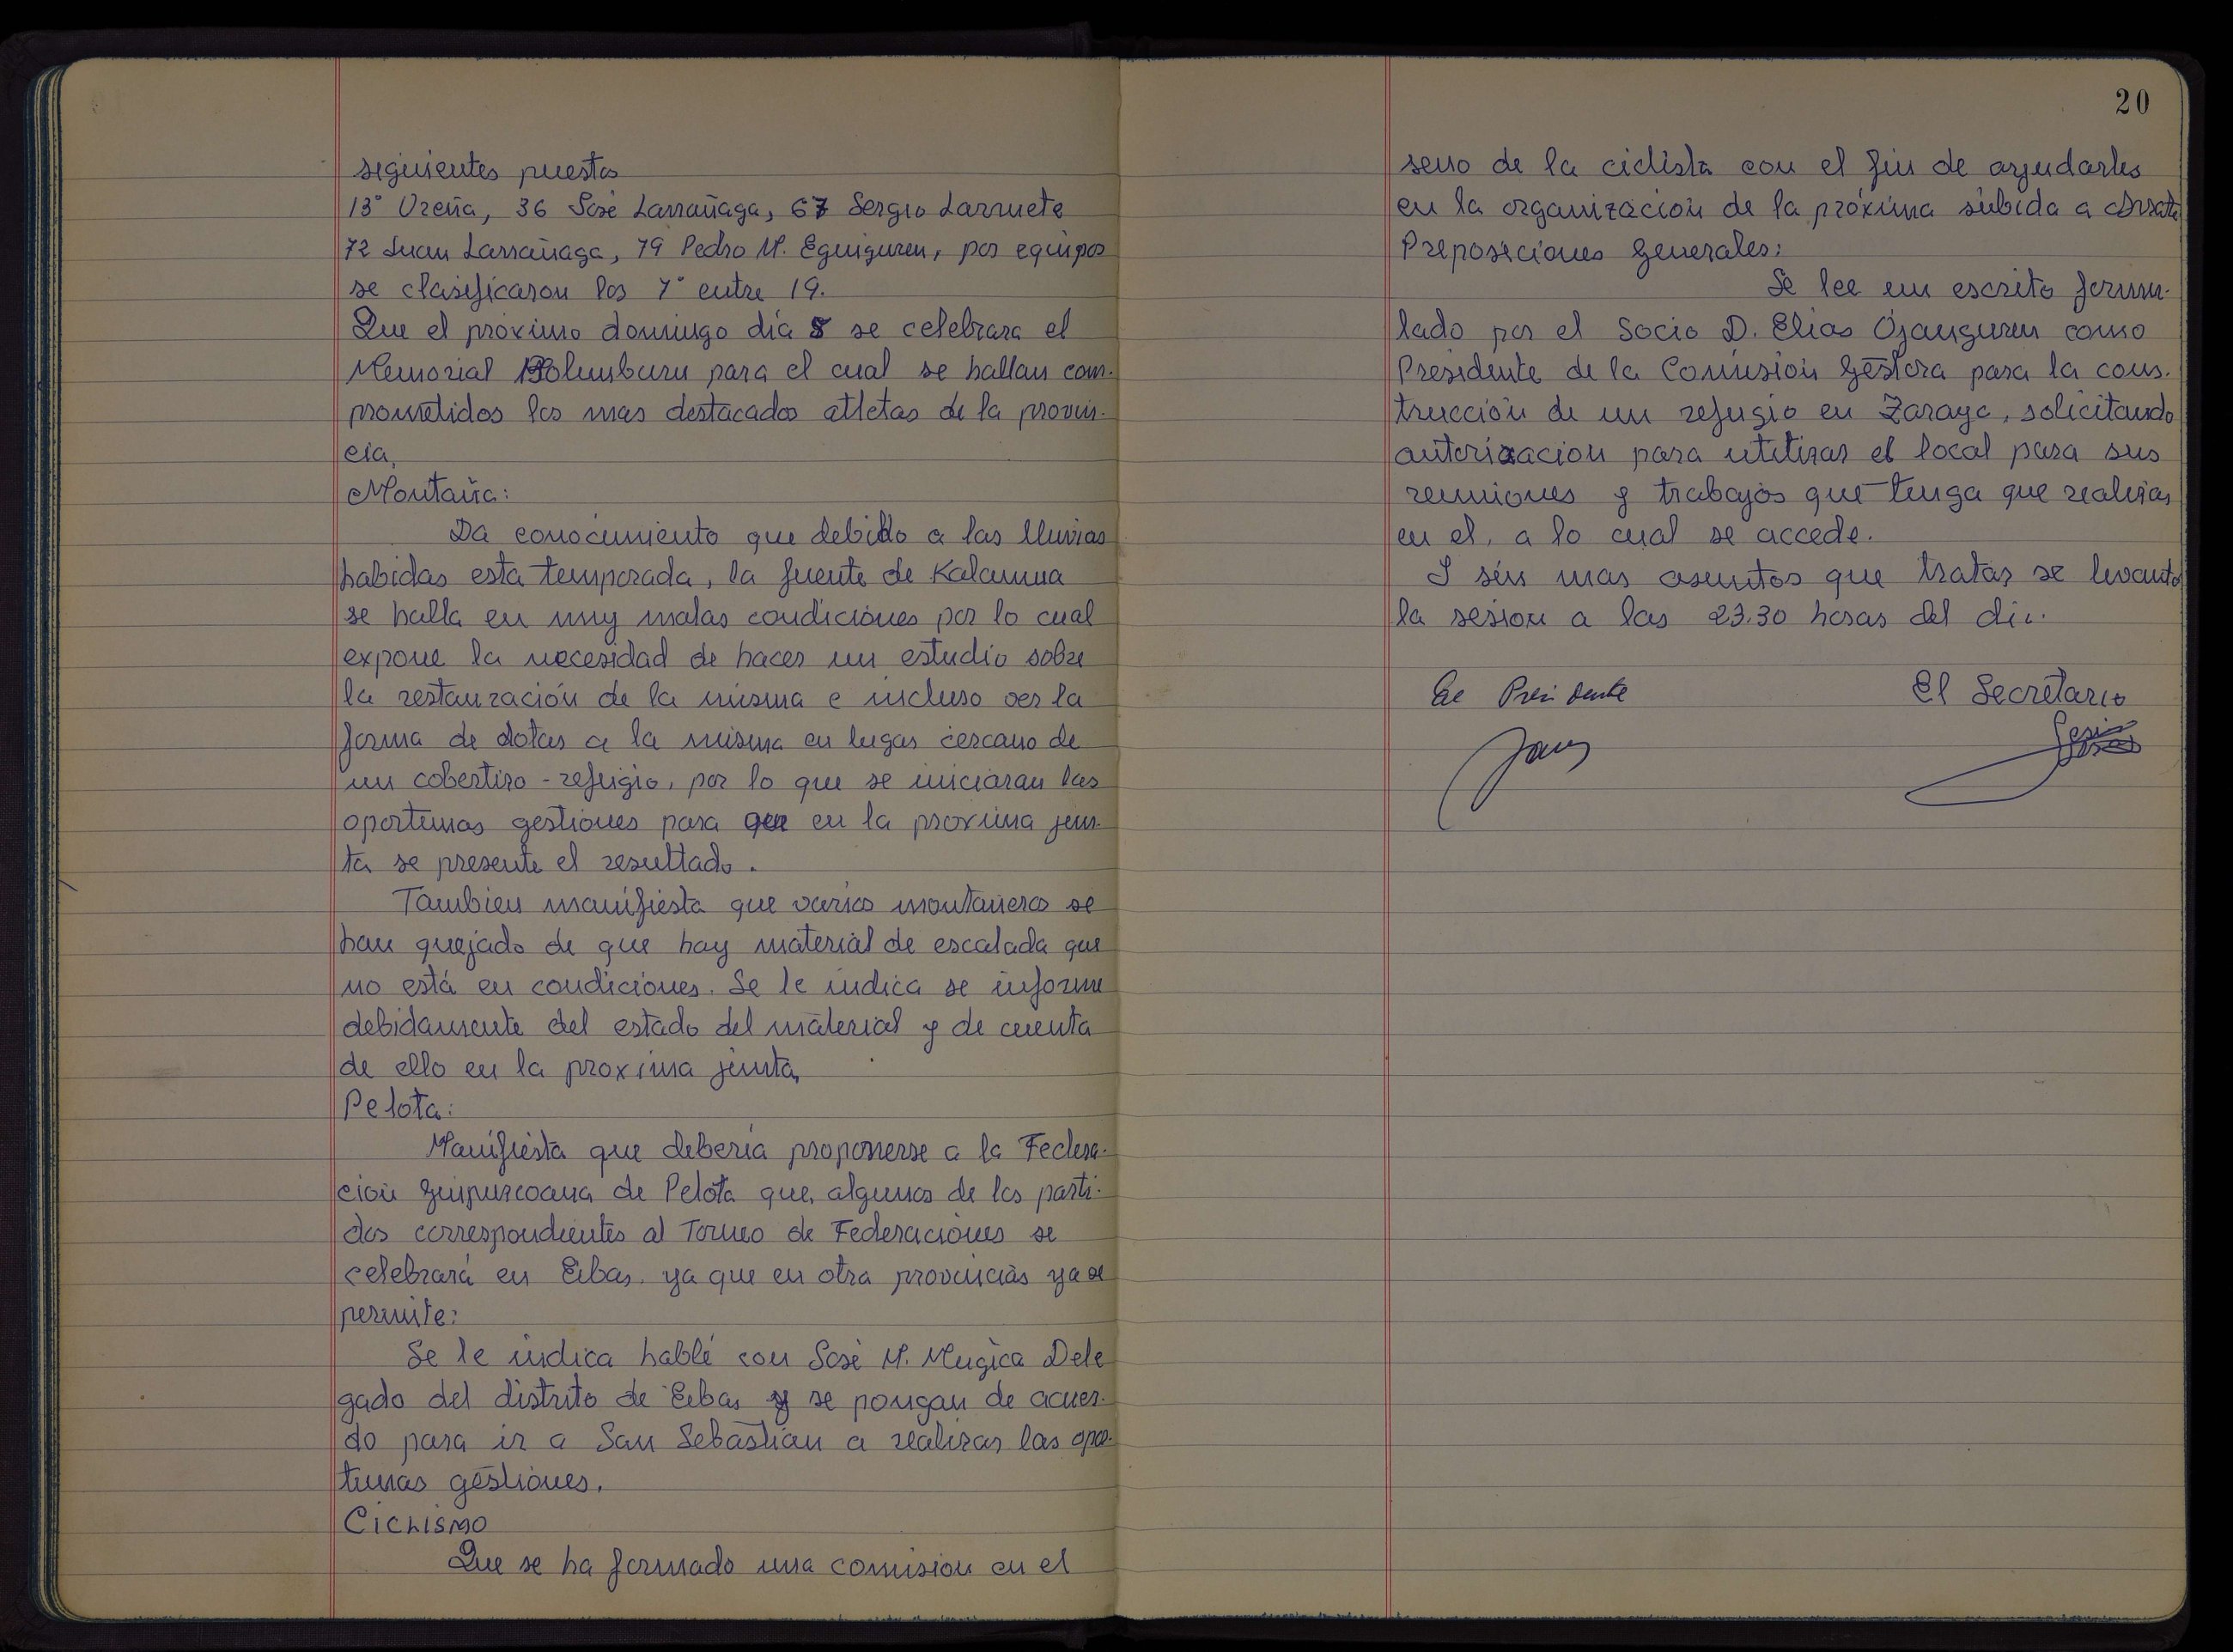 siguientes puestos
13º Ureña, 36 José Larrañaga, 67 Sergio Larruete
72 Juan Larrañaga, 79 Pedro M. Eguiguren, por equipos
se clasificaron los 7º entre 19.
Que el proximo domingo día 8 se celebrara el
Memorial Bolumburu para el cual se hallan com-
prometidos los mas destacados atletas de la provin-
cia,
Montaña:
Da conocimiento que debido a las lluvias
habidas esta temporada, la fuente de Kalamua
se halla en muy malas condiciones por lo cual
expone la necesidad de hacer un estudio sobre
la restauración de la misma e incluso ver la
forma de dotar a la misma en lugar cercano de
un cobertizo-refugio, por lo que se iniciaran las
oportunas gestiones para que en la proxima jun-
ta se presente el resultado.
Tambien manifiesta que varios montañeros se
han quejado de que hay material de escalada que
no está en condiciones. Se le indica se informe
debidamente del estado del material y de cuenta
de ello en la proxima junta,
Pelota:
Manifiesta que debería proponerse a la Federa-
cion guipuzcoana de Pelota que, algunos de los parti-
dos correspondientes al Torneo de Federaciones se
celebrará en Eibar, ya que en otra provincias ya se
permite:
Se le indica hablé con José M. Mugica Dele
gado del distrito de Eibar y se pongan de acuer-
do para ir a San Sebastian a realizar las opor-
tunas gestiones.
Ciclismo
Que se ha formado una comision en el
20
seno de la ciclista con el fin de ayudarles
en la organización de la próxima subida a Arrate
Preposiciones generales:
Se lee un escrito formu-
lado por el Socio D. Elias Ojanguren como
Presidente de la Comisión Gestora para la cons-
trucción de un refugio en Zaraya, solicitando
autorizacion para utilizar el local para sus
reuniones y trabajos que tenga que realizar
en el, a lo cual se accede.
I sin mas asuntos que tratar se levanto
la sesion a las 23.30 horas del dia.
El Presidente
El Secretario